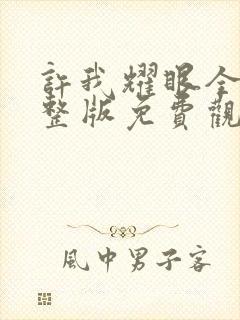 許我耀眼全
整版免費觀
風中男子客